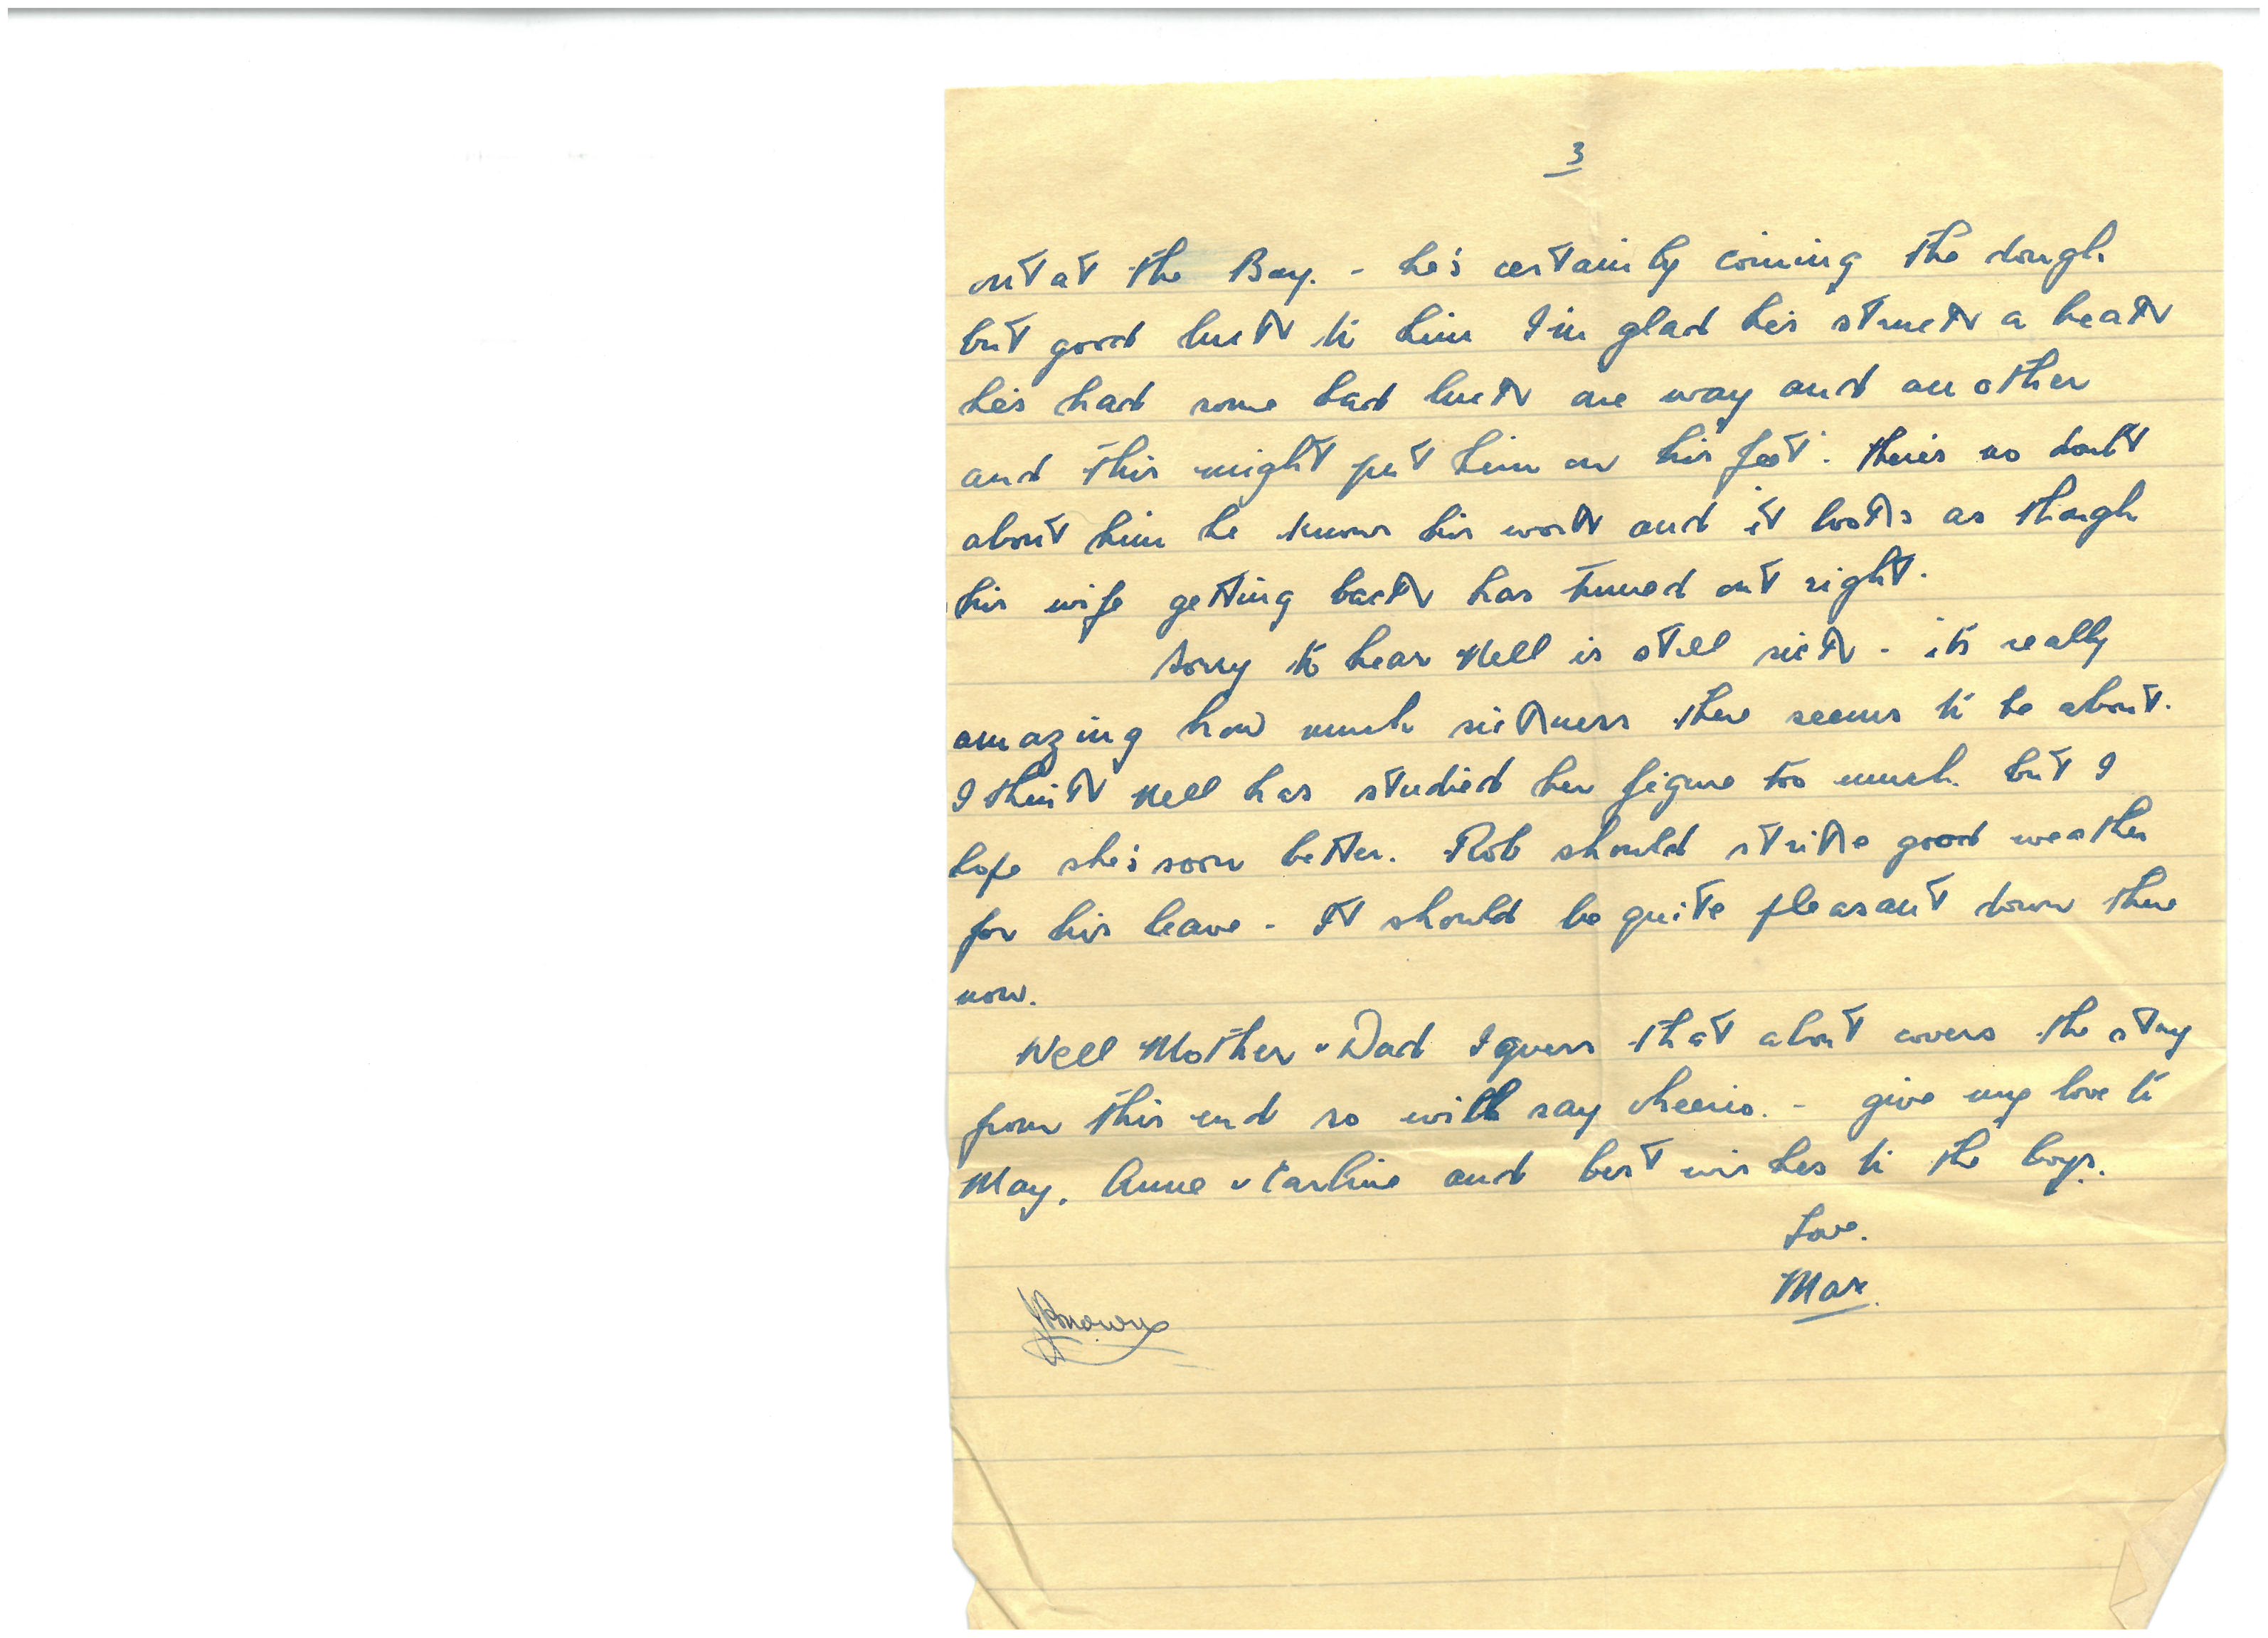 3
out at the Bay. - he's certainly coining the dough
but good luck to him I'm glad he's struck a beak
he's had some bad luck one way and another
and this might put him on his feet. there's no doubt
about him he knows his work and it looks as though
his wife getting back has turned out right.
Sorry to hear Nell is still sick - it's really
amazing how much sickness there seems to be about.
I think Nell has studied her figure too much but I
hope she's soon better. Rob should strike good weather
for his leave - It should be quite pleasant down there
now.
Well Mother & Dad I guess that about covers the story
from this end so will say cheerio. - give my love to
May, Anne & Carline and best wishes to the boys.
Love.
Max.